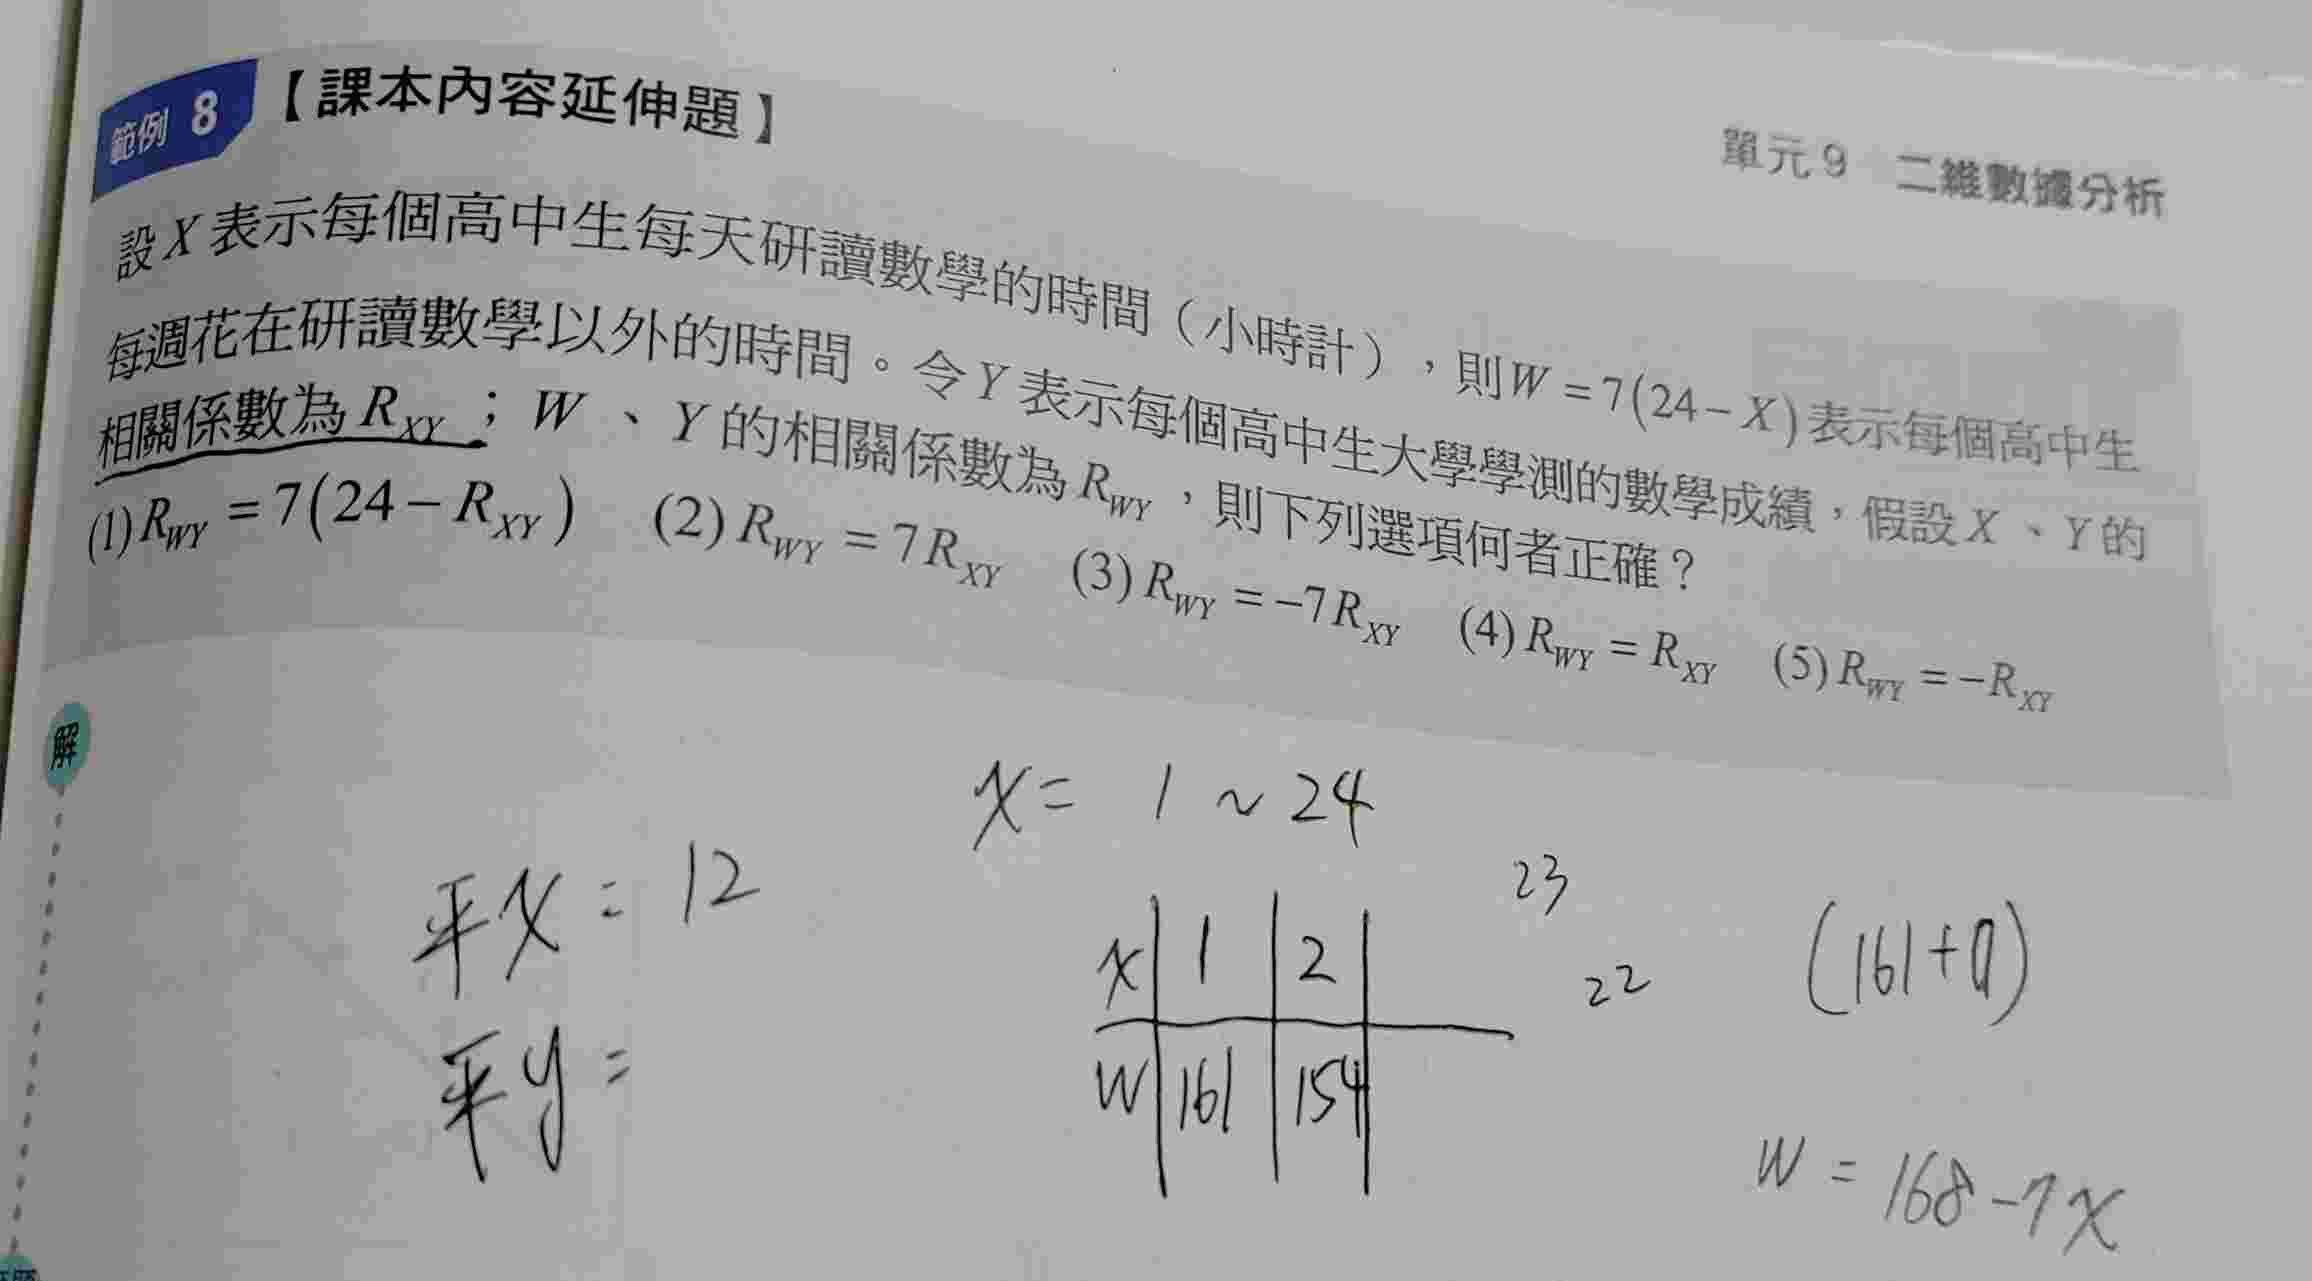 範例 8 【課本內容延伸題】
單元 9 二維數據分析
設 X 表示每個高中生每天研讀數學的時間（小時計），則 W = 7(24 − X) 表示每個高中生
每週花在研讀數學以外的時間。令 Y 表示每個高中生大學學測的數學成績，假設 X 、 Y 的
相關係數為 R_XY ； W 、 Y 的相關係數為 R_WY ，則下列選項何者正確？
(1) R_WY = 7(24 − R_XY) (2) R_WY = 7R_XY (3) R_WY = −7R_XY (4) R_WY = R_XY (5) R_WY = −R_XY
解
x = 1 ~ 24
平 x = 12
平 y =
x 1 2
W 161 154
23
22
(161+0)
W = 168 − 7x